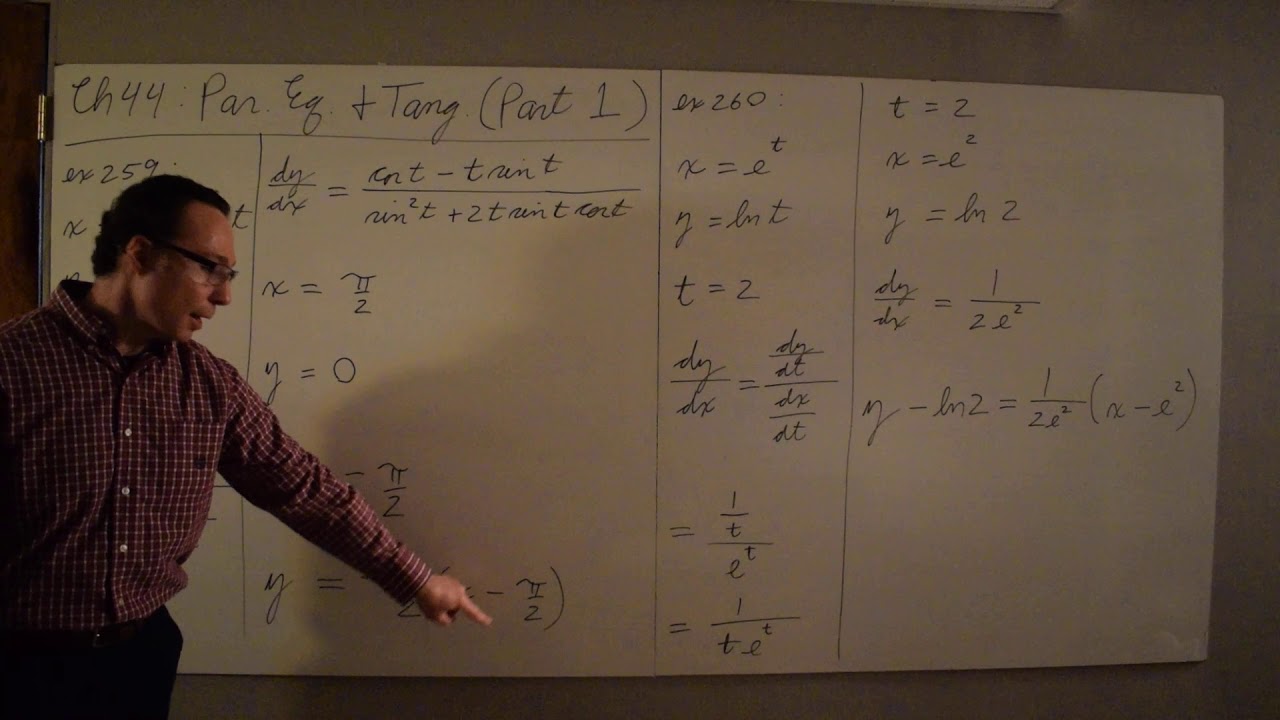 Ch 44: Par. Eq. + Tang. (Part 1)
ex 259:
x
t
dy/dx = (cos t - t sin t)/(sin²t + 2t sin t cos t)
x = π/2
y = 0
- π/2
y = 2 ( - π/2)
ex 260:
x = e^t
y = ln t
t = 2
dy/dx = (dy/dt)/(dx/dt)
= (1/t)/e^t
= 1/(t e^t)
t = 2
x = e²
y = ln 2
dy/dx = 1/(2e²)
y - ln 2 = 1/(2e²) (x - e²)